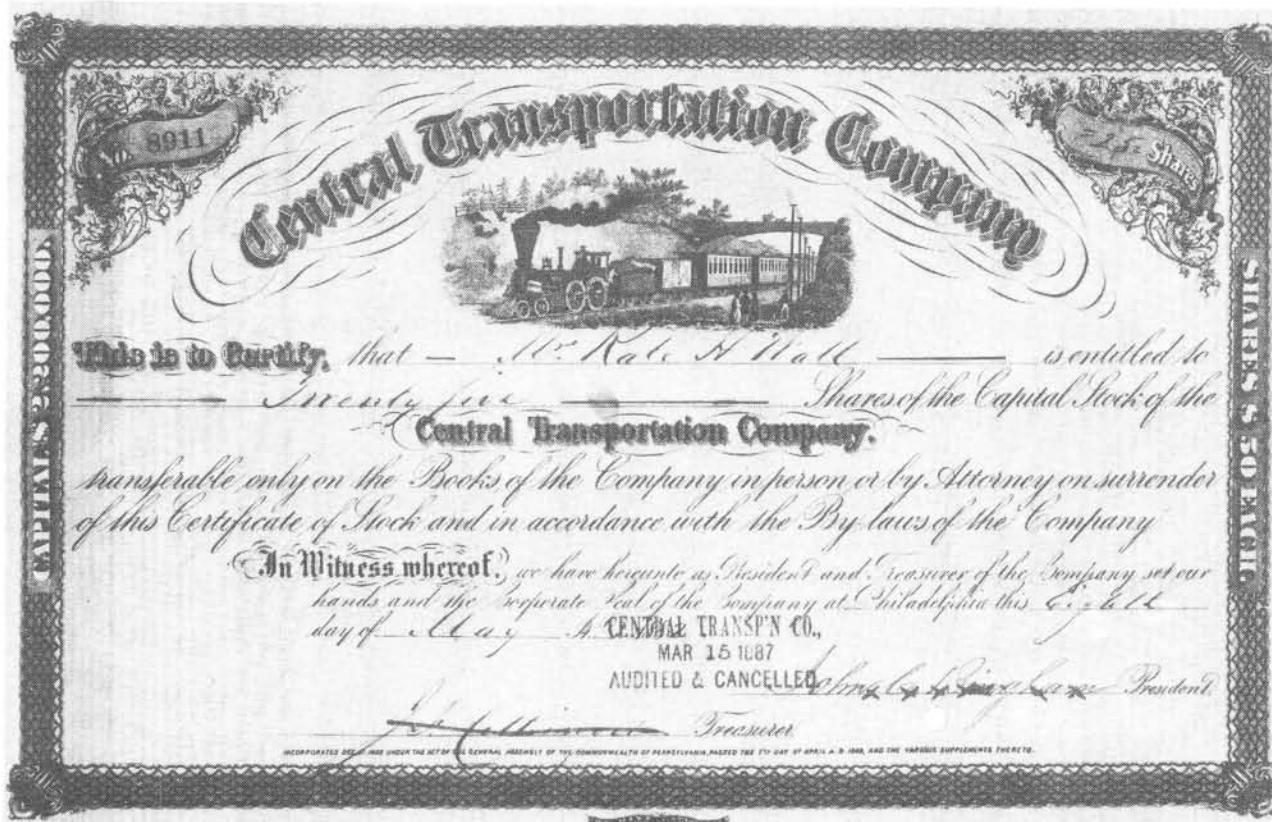 No. 8911
25 Shares
Central Transportation Company
CAPITAL $2,200,000.
SHARES $ 50 EACH.
This is to Certify, that — Mrs Kate H Wall — is entitled to
Twenty five Shares of the Capital Stock of the
Central Transportation Company.
transferable only on the Books of the Company in person or by Attorney on surrender
of this Certificate of Stock and in accordance with the By-laws of the Company
In Witness whereof, we have hereunto as President and Treasurer of the Company set our
hands and the Corporate Seal of the Company at Philadelphia this Eighth
day of May A.
CENTRAL TRANSP'N CO.,
MAR 15 1887
AUDITED & CANCELLED
President
Treasurer
INCORPORATED UNDER THE ACT OF THE GENERAL ASSEMBLY OF THE COMMONWEALTH OF PENNSYLVANIA, PASSED THE 7TH DAY OF APRIL A.D. AND THE VARIOUS SUPPLEMENTS THERETO.